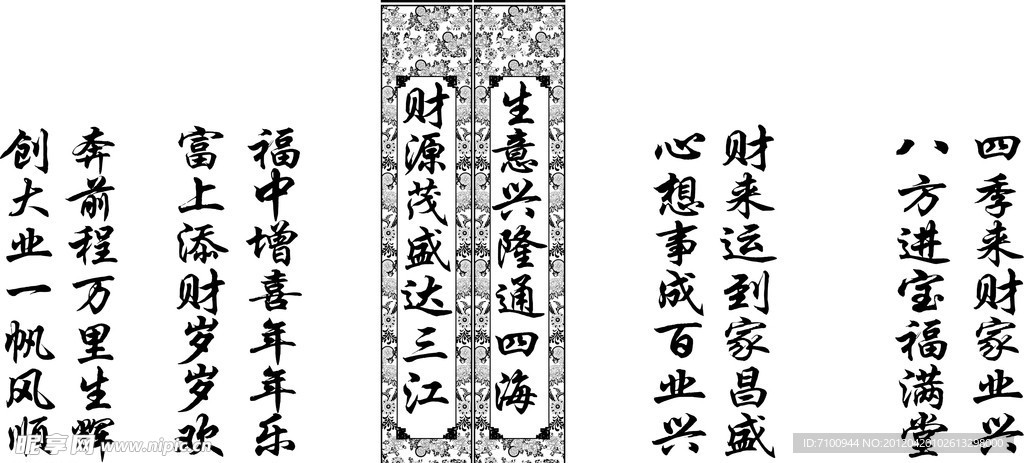 四季来财家业兴
八方进宝福满堂
财来运到家昌盛
心想事成百业兴
生意兴隆通四海
财源茂盛达三江
福中增喜年年乐
富上添财岁岁欢
奔前程万里生辉
创大业一帆风顺
昵享网 www.nipic.cn
ID:7100944 NO:20120428102613298000